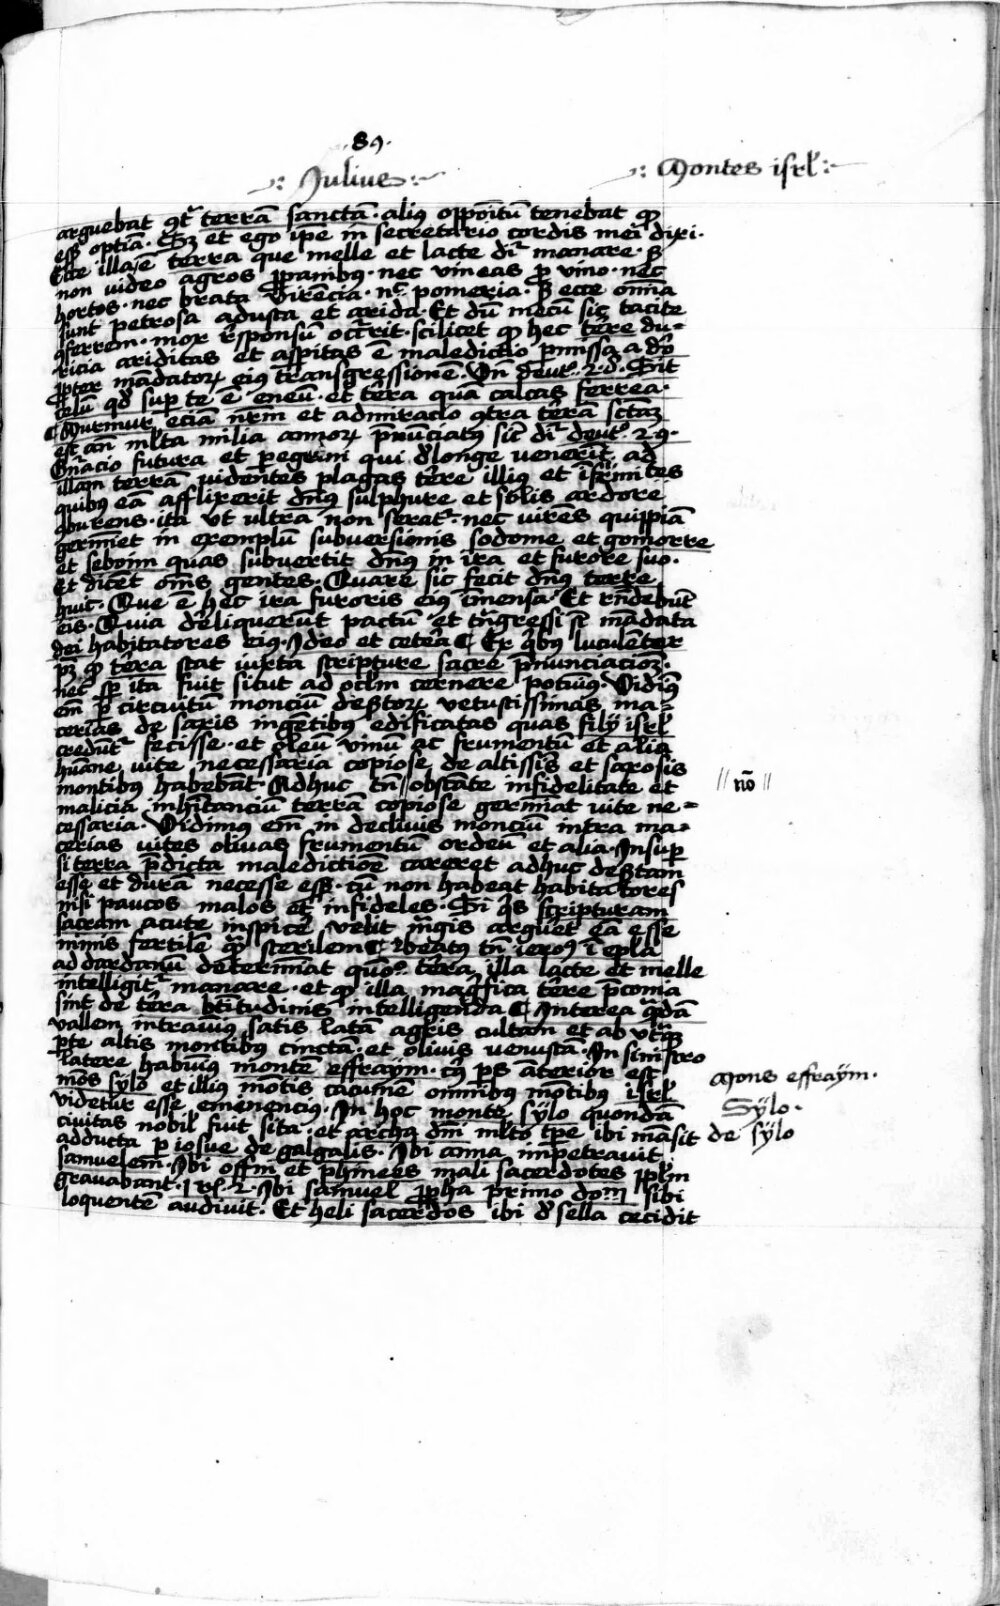 89.
Julius
Montes isrl
arguebat 9tra terrā sanctā. aliꝯ oppoītū tenebat qꝫ
esse optiā. Sꝫ et ego ipē in secretario cordis mei dixi.
Ecce illa ē terra que melle et lacte dr̄ manare. sꝫ
non video agros ꝓ panibus. nec vineas ꝓ vino. nec
hortos. nec brata virēcia. nec pomeria. sꝫ ecce omīa
sunt petrosa adusta et arida. Et dū mecū sic tacite
9ferrem. mox rn̄sponsū occrrit. scilicet qꝫ hec terre du-
ricia ariditas et asperitas ē maledictio pmissa a deo
ꝓpter mādatoꝝ eius trāsgressione. Vn̄ deut. 28. Sit
celū qd̄ sup te ē eneū. et terra quā calcas ferrea.
Murmur eciā nrm̄ et admiracio 9tra terrā sctāꝫ
est ān mlta milia annoꝝ pnūciatꝰ sic dr̄ deut. 29.
Gn̄acio futura et peregrini qui de longe venerīt ad
illam terrā videntes plagas terre illiꝰ et ifirmites
quibus eā afflixerit dn̄s sulphure et solis ardore
9burens. ita ut ultra non seratr. nec virens quippiā
germīet in exemplū subversionis sodome et gomorre
et seboim quas subvertit dn̄s in ira et furore suo.
Et dicēt om̄s gentes. Quare sic fecit dn̄s terre
huic. Que ē hec ira furoris eiꝰ īmensa. Et rn̄debūt
eis. Quia deliquerūt pactū et trn̄gressi st mādata
dei habitatores eiꝰ. Ideo et cetera Ex qbus luculēter
pꝫ qꝫ terra stat iuxta scripture sacre pnunciacioꝫ.
nec sp ita fuit sicut ad oclm̄ cernere potuimꝰ. Vidimꝰ
em̄ p circuitū monciū desertoꝝ vetustissimas ma-
cerias de saxis ingētibus edificatas quas filij isrl
credūtr fecisse. et oleū vinū ac frumentū et alia
hūane vite necessaria copiose de altissis et saxosis
montibus habebāt. Adhuc tn̄ obstāte infidelitate et
malicia inhītanciū terrā copiose germīat vite ne-
cessaria. Vidimꝰ em̄ in declivis monciū intra ma-
cerias vites olivas frumentū ordeū et alia. Insup
si terra pdicta maledictioē careret adhuc desertam
esse et durā necesse esset. cū non habeat habitatores
nisi paucos malos et infideles. Si qs scripturam
sacram acute inspicē velit magis arguet eā esse
nimis fertilē qꝫ sterilem btūs tn̄ ieroꝰ ī epla
ad dardanū determīat quō terra illa lacte et melle
intelligitr manare. et qꝫ illa magfica terre pconia
sint de terra btitudinis intelligenda Interea qdā
vallem intravimꝰ satis latā agris cultam et ab utqꝫ
pte altis montibꝰ cinctā. et olivis venustā. In sinistro
latere habuimꝰ montē effraym. cꝰ ps āterior est
mōs sylo et illius mōtis cacumē omnibus mōtibus isrl
videtur esse eminenciꝰ. In hoc monte sylo quondā
civitas nobil fuit sita. et archa dn̄i mlto tpe ibi māsit
adducta p iosue de galgalis. Ibi anna impetravit
samuelem. Ibi offni et phinees mali sacerdotes pplm
gravabant. 1 R. 2. Ibi samuel ppha primo dom̄ sibi
loquentē audivit. Et heli sacerdos ibi de sella cecidit
nō
Mons effraym.
Sylo.
de sylo